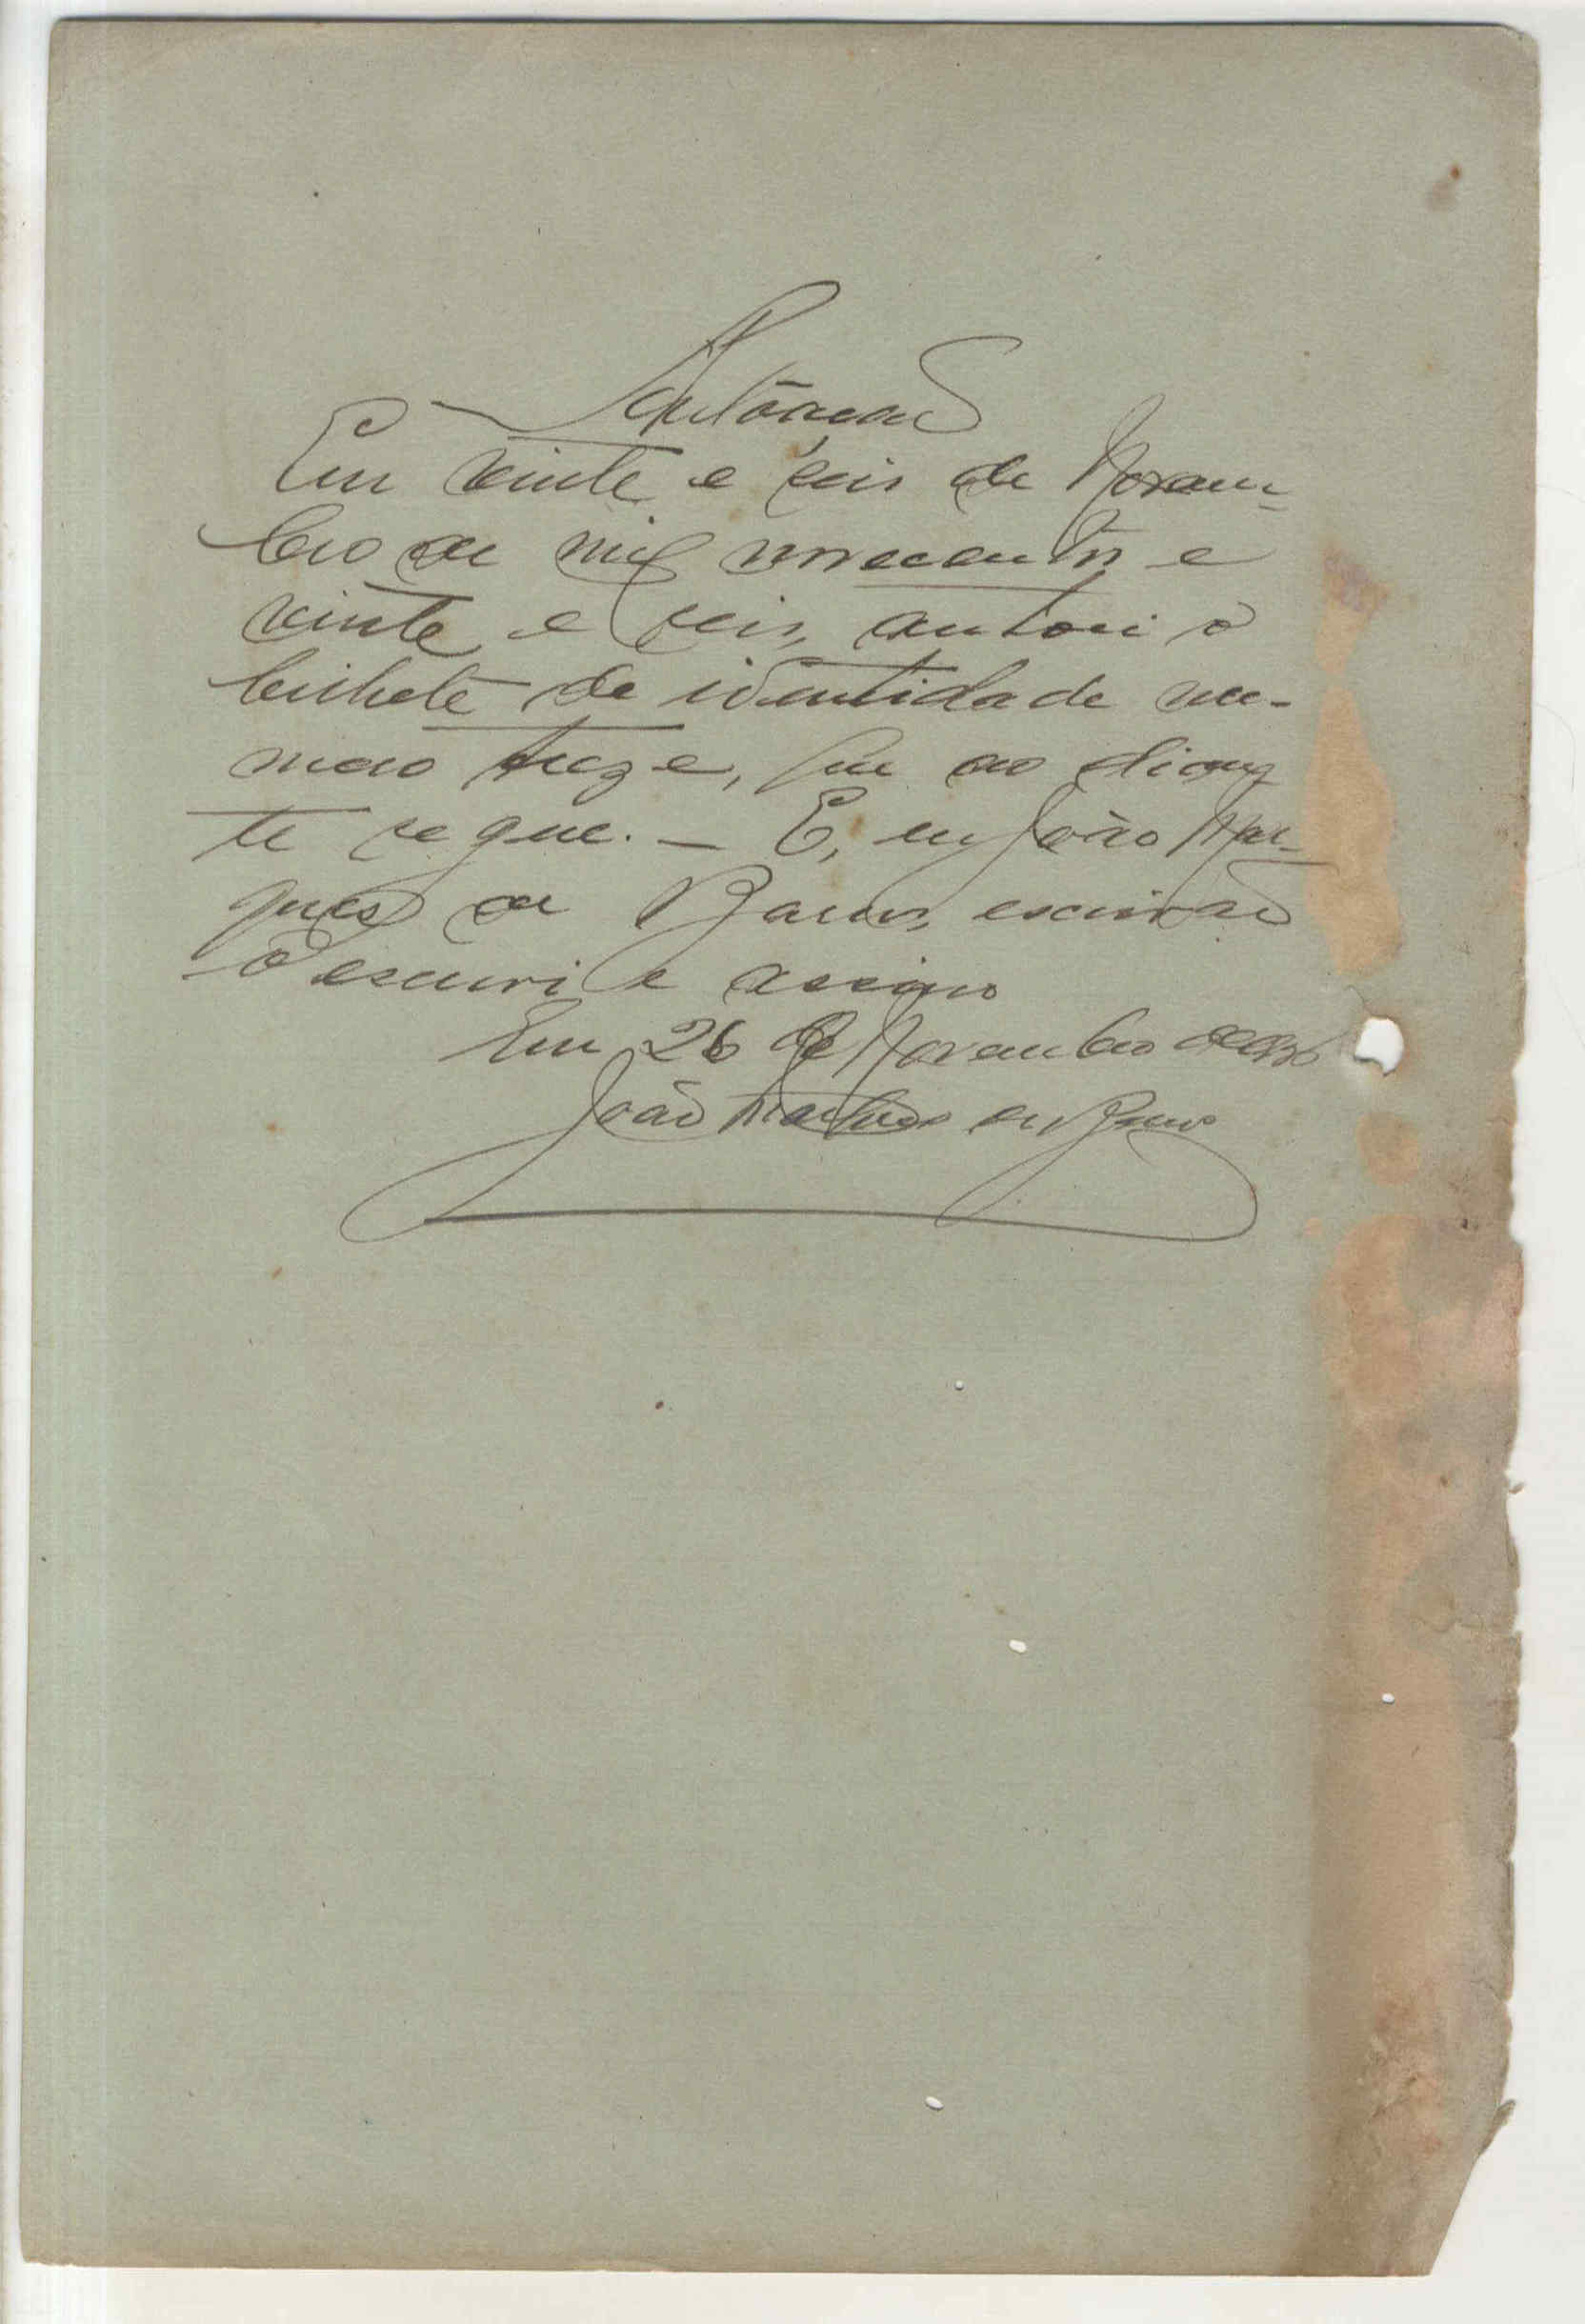 Autoação
Em vinte e seis de Novem-
bro de mil novecentos e
vinte e seis, autoei o
bilhete de identidade nu-
mero treze, que ao dian-
te segue. — E, eu João Mar-
ques de Barros, escrivão
o escrevi e assino
Em 26 de Novembro de 1926
João Marques de Barros